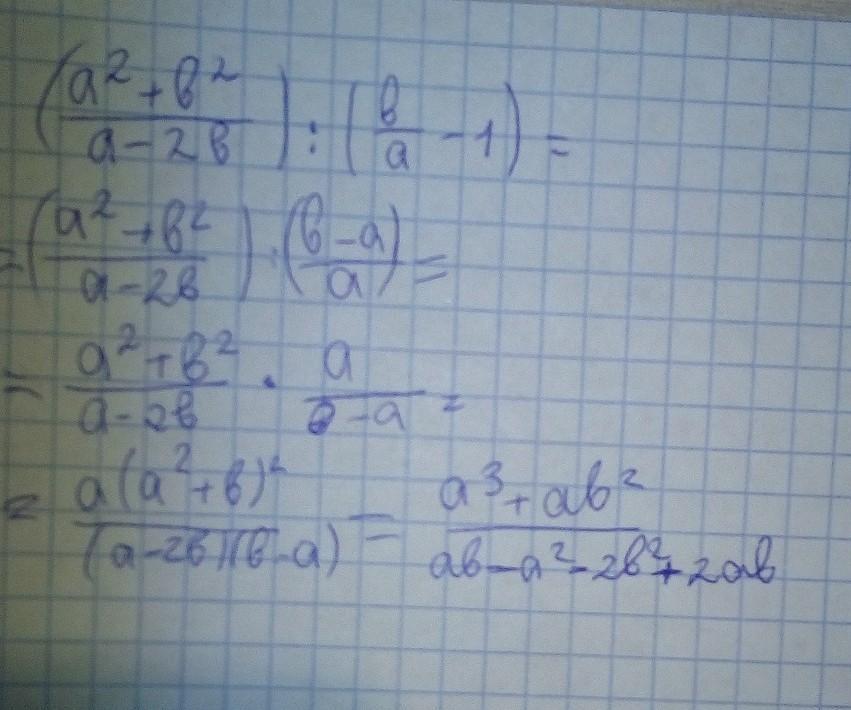 (a²+b²)/(a-2b) : (b/a - 1) =
= (a²+b²)/(a-2b) : ((b-a)/a) =
= (a²+b²)/(a-2b) · a/(b-a) =
= a(a²+b)²/((a-2b)(b-a)) = (a³+ab²)/(ab-a²-2b²+2ab)